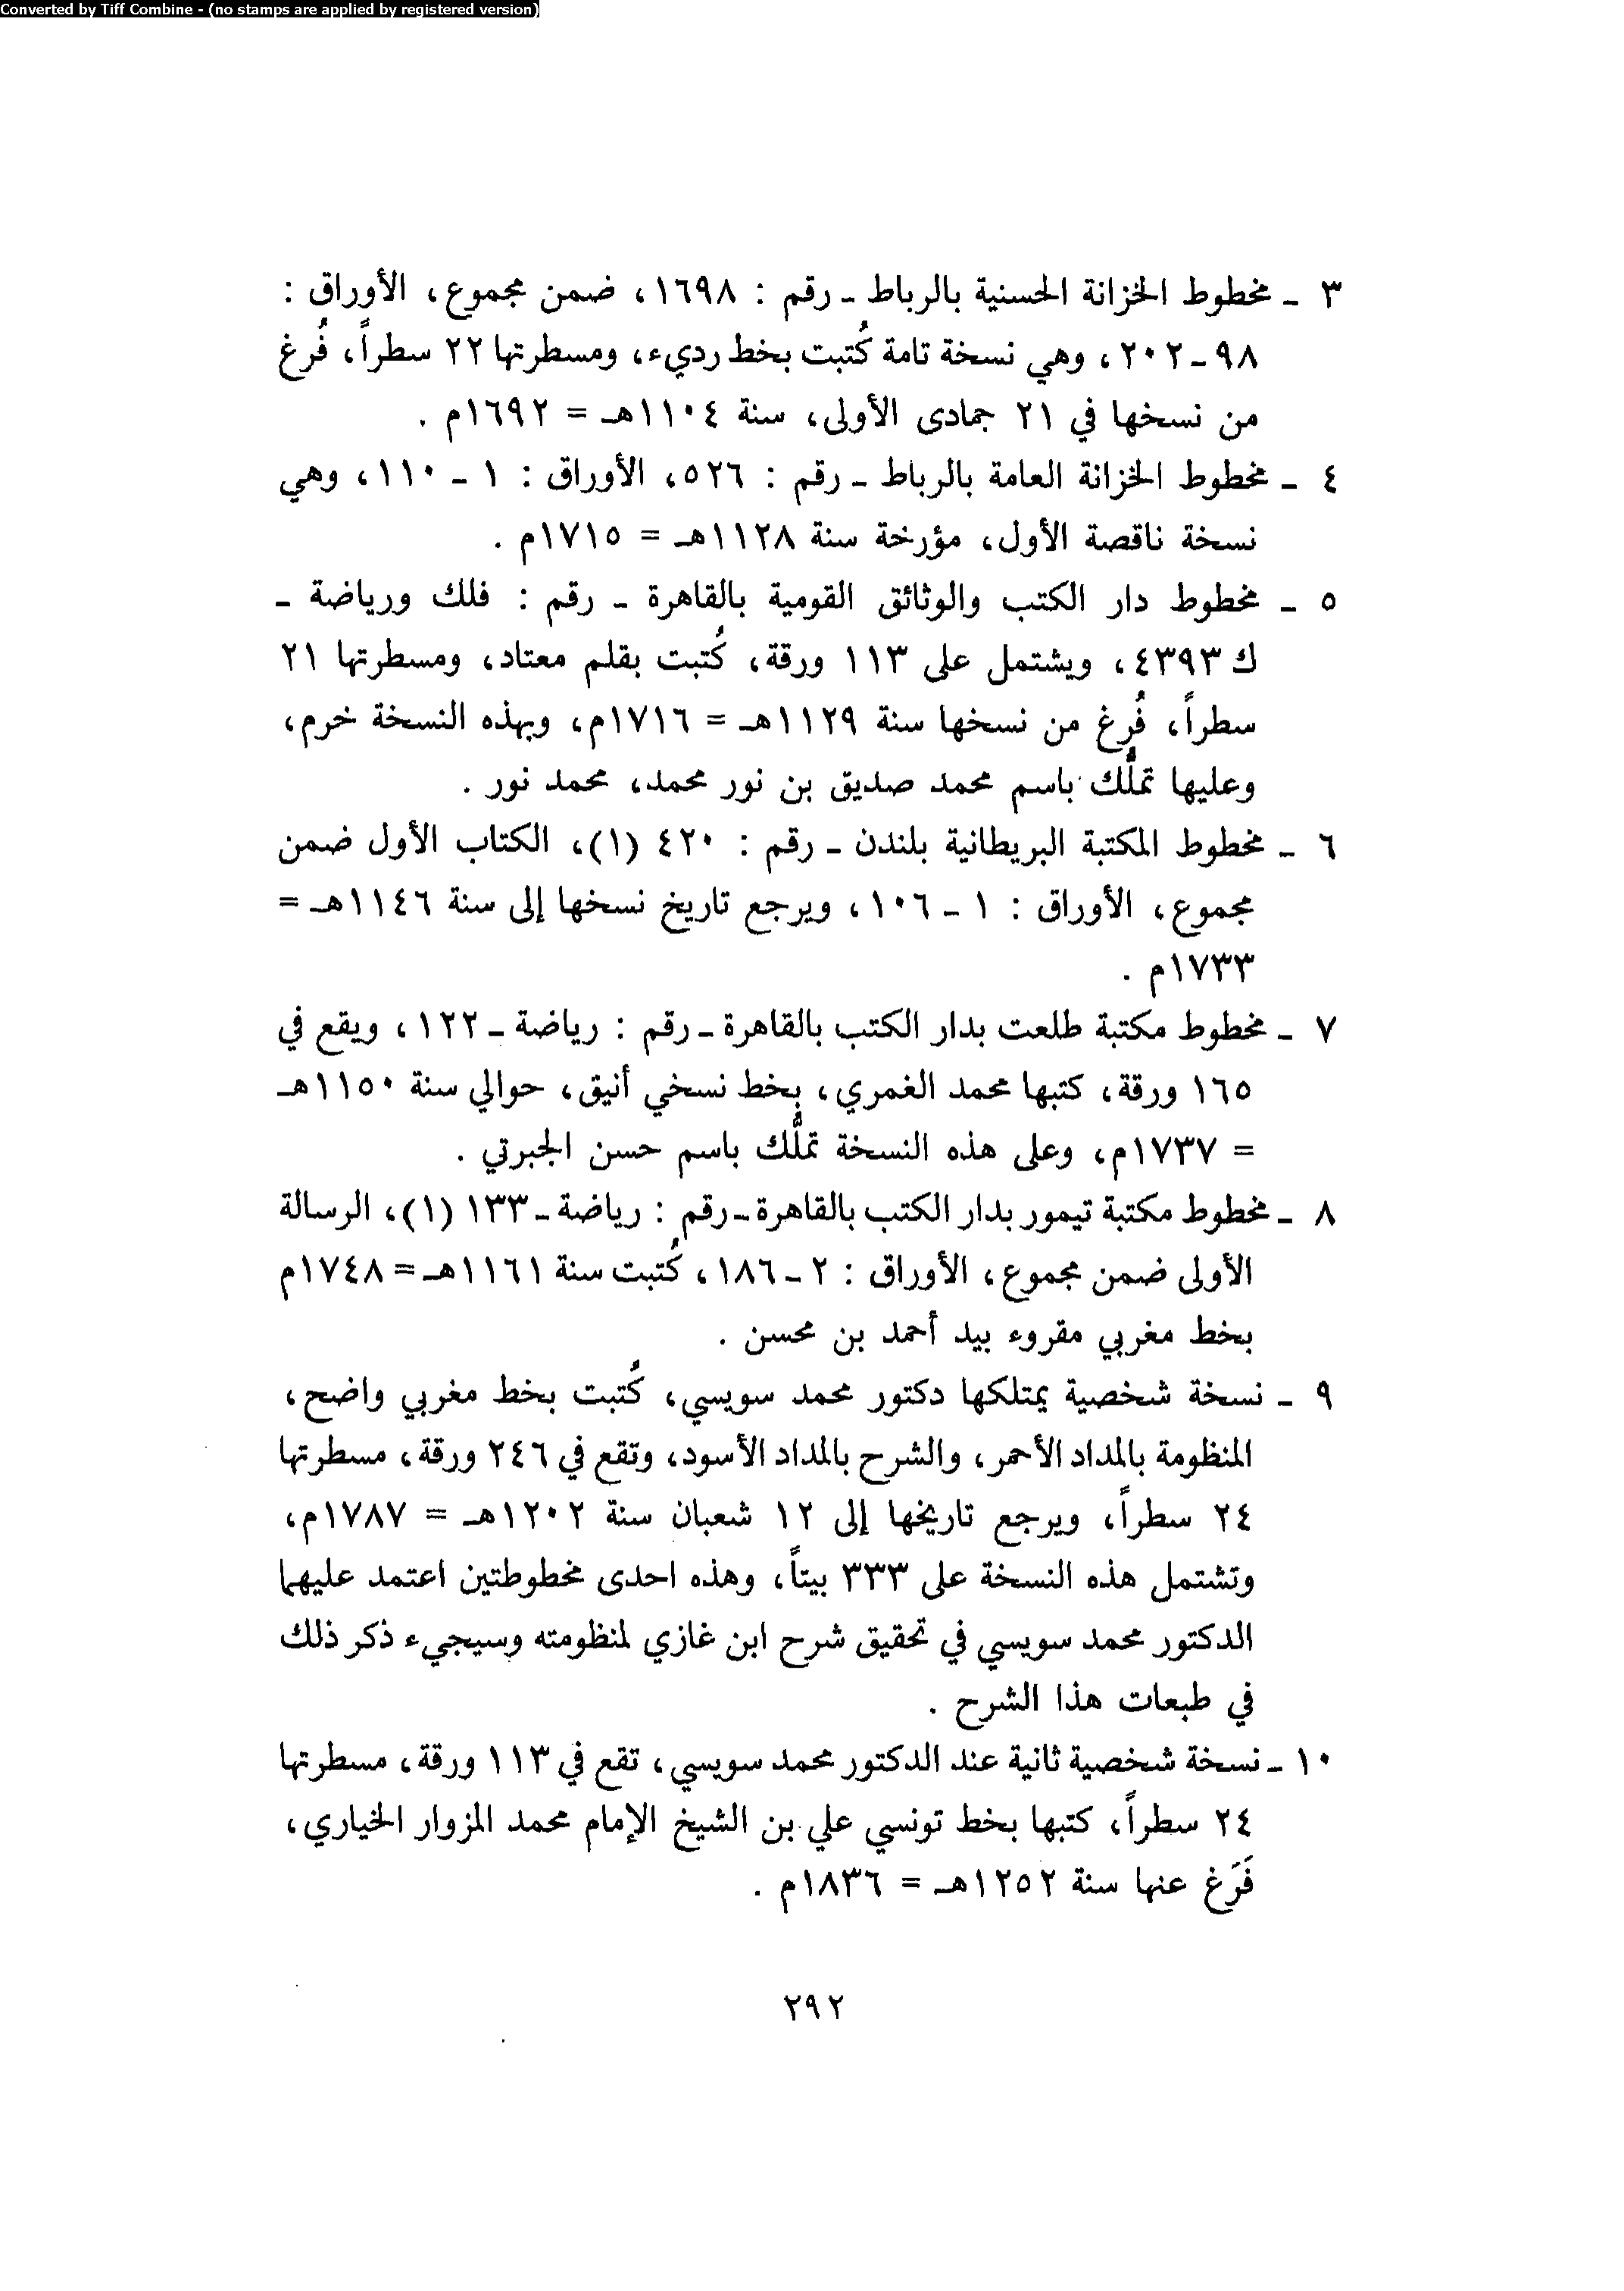 Converted by Tiff Combine - (no stamps are applied by registered version)
٣ ـ مخطوط الخزانة الحسنية بالرباط ـ رقم : ١٦٩٨، ضمن مجموع، الأوراق :
٩٨ـ٢٠٢، وهي نسخة تامة كُتبت بخط رديء، ومسطرتها ٢٢ سطراً، فُرغ
من نسخها في ٢١ جمادى الأولى، سنة ١١٠٤هـ = ١٦٩٢م .
٤ ـ مخطوط الخزانة العامة بالرباط ـ رقم : ٥٢٦، الأوراق : ١ ـ ١١٠، وهي
نسخة ناقصة الأول، مؤرخة سنة ١١٢٨هـ = ١٧١٥م .
٥ ـ مخطوط دار الكتب والوثائق القومية بالقاهرة ـ رقم : فلك ورياضة ـ
ك ٤٣٩٣، ويشتمل على ١١٣ ورقة، كُتبت بقلم معتاد، ومسطرتها ٢١
سطراً، فُرغ من نسخها سنة ١١٢٩هـ = ١٧١٦م، وبهذه النسخة خرم،
وعليها تملُّك باسم محمد صديق بن نور محمد، محمد نور .
٦ ـ مخطوط المكتبة البريطانية بلندن ـ رقم : ٤٢٠ (١)، الكتاب الأول ضمن
مجموع، الأوراق : ١ ـ ١٠٦، ويرجع تاريخ نسخها إلى سنة ١١٤٦هـ =
١٧٣٣م .
٧ ـ مخطوط مكتبة طلعت بدار الكتب بالقاهرة ـ رقم : رياضة ـ ١٢٢، ويقع في
١٦٥ ورقة، كتبها محمد الغمري، بخط نسخي أنيق، حوالي سنة ١١٥٠هـ
= ١٧٣٧م، وعلى هذه النسخة تملُّك باسم حسن الجبرتي .
٨ ـ مخطوط مكتبة تيمور بدار الكتب بالقاهرة ـ رقم : رياضة ـ ١٣٣ (١)، الرسالة
الأولى ضمن مجموع، الأوراق : ٢ ـ ١٨٦، كُتبت سنة ١١٦١هـ = ١٧٤٨م
بخط مغربي مقروء بيد أحمد بن محسن .
٩ ـ نسخة شخصية يمتلكها دكتور محمد سويسي، كُتبت بخط مغربي واضح،
المنظومة بالمداد الأحمر، والشرح بالمداد الأسود، وتقع في ٢٤٦ ورقة، مسطرتها
٢٤ سطراً، ويرجع تاريخها إلى ١٢ شعبان سنة ١٢٠٢هـ = ١٧٨٧م،
وتشتمل هذه النسخة على ٣٣٣ بيتاً، وهذه احدى مخطوطتين اعتمد عليهما
الدكتور محمد سويسي في تحقيق شرح ابن غازي لمنظومته وسيجيء ذكر ذلك
في طبعات هذا الشرح .
١٠ ـ نسخة شخصية ثانية عند الدكتور محمد سويسي، تقع في ١١٣ ورقة، مسطرتها
٢٤ سطراً، كتبها بخط تونسي علي بن الشيخ الإمام محمد المزوار الخياري،
فَرَغ عنها سنة ١٢٥٢هـ = ١٨٣٦م .
٢٩٢